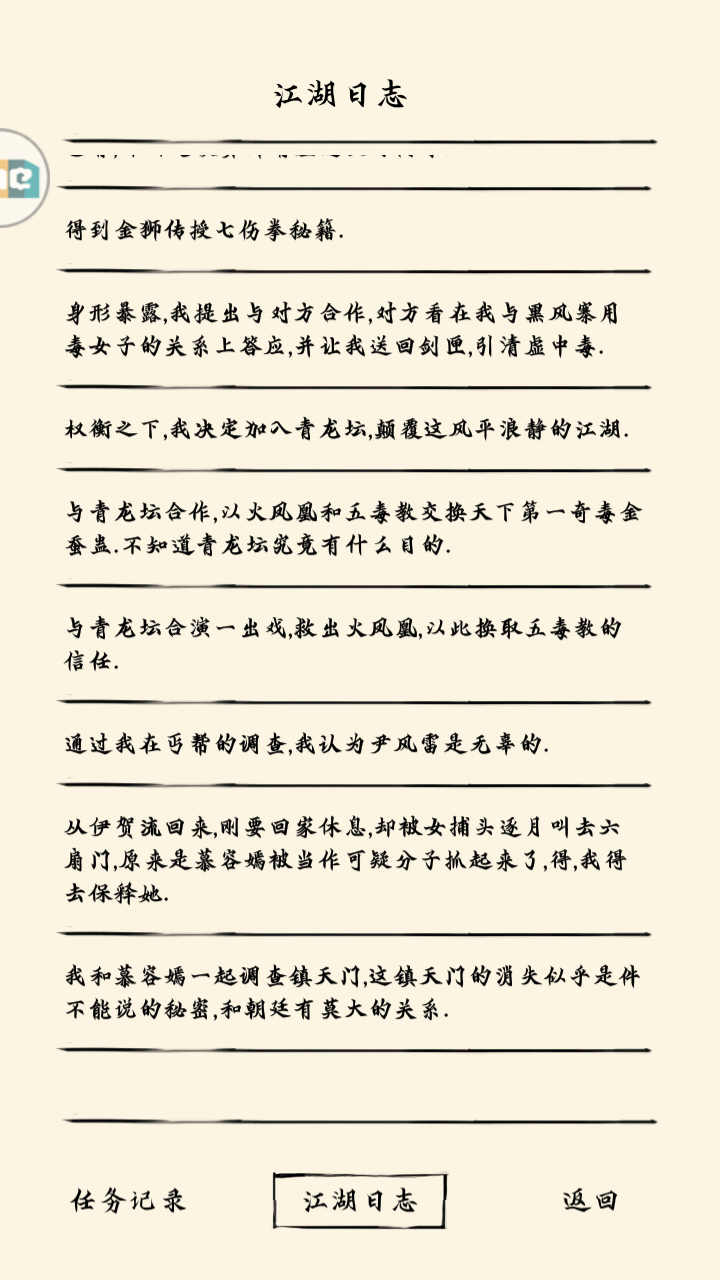 江湖日志
得到金狮传授七伤拳秘籍.
身形暴露,我提出与对方合作,对方看在我与黑风寨用
毒女子的关系上答应,并让我送回剑匣,引清虚中毒.
权衡之下,我决定加入青龙坛,颠覆这风平浪静的江湖.
与青龙坛合作,以火凤凰和五毒教交换天下第一奇毒金
蚕蛊.不知道青龙坛究竟有什么目的.
与青龙坛合演一出戏,救出火凤凰,以此换取五毒教的
信任.
通过我在丐帮的调查,我认为尹风雷是无辜的.
从伊贺流回来,刚要回家休息,却被女捕头逐月叫去六
扇门,原来是慕容嫣被当作可疑分子抓起来了,得,我得
去保释她.
我和慕容嫣一起调查镇天门,这镇天门的消失似乎是件
不能说的秘密,和朝廷有莫大的关系.
任务记录
江湖日志
返回